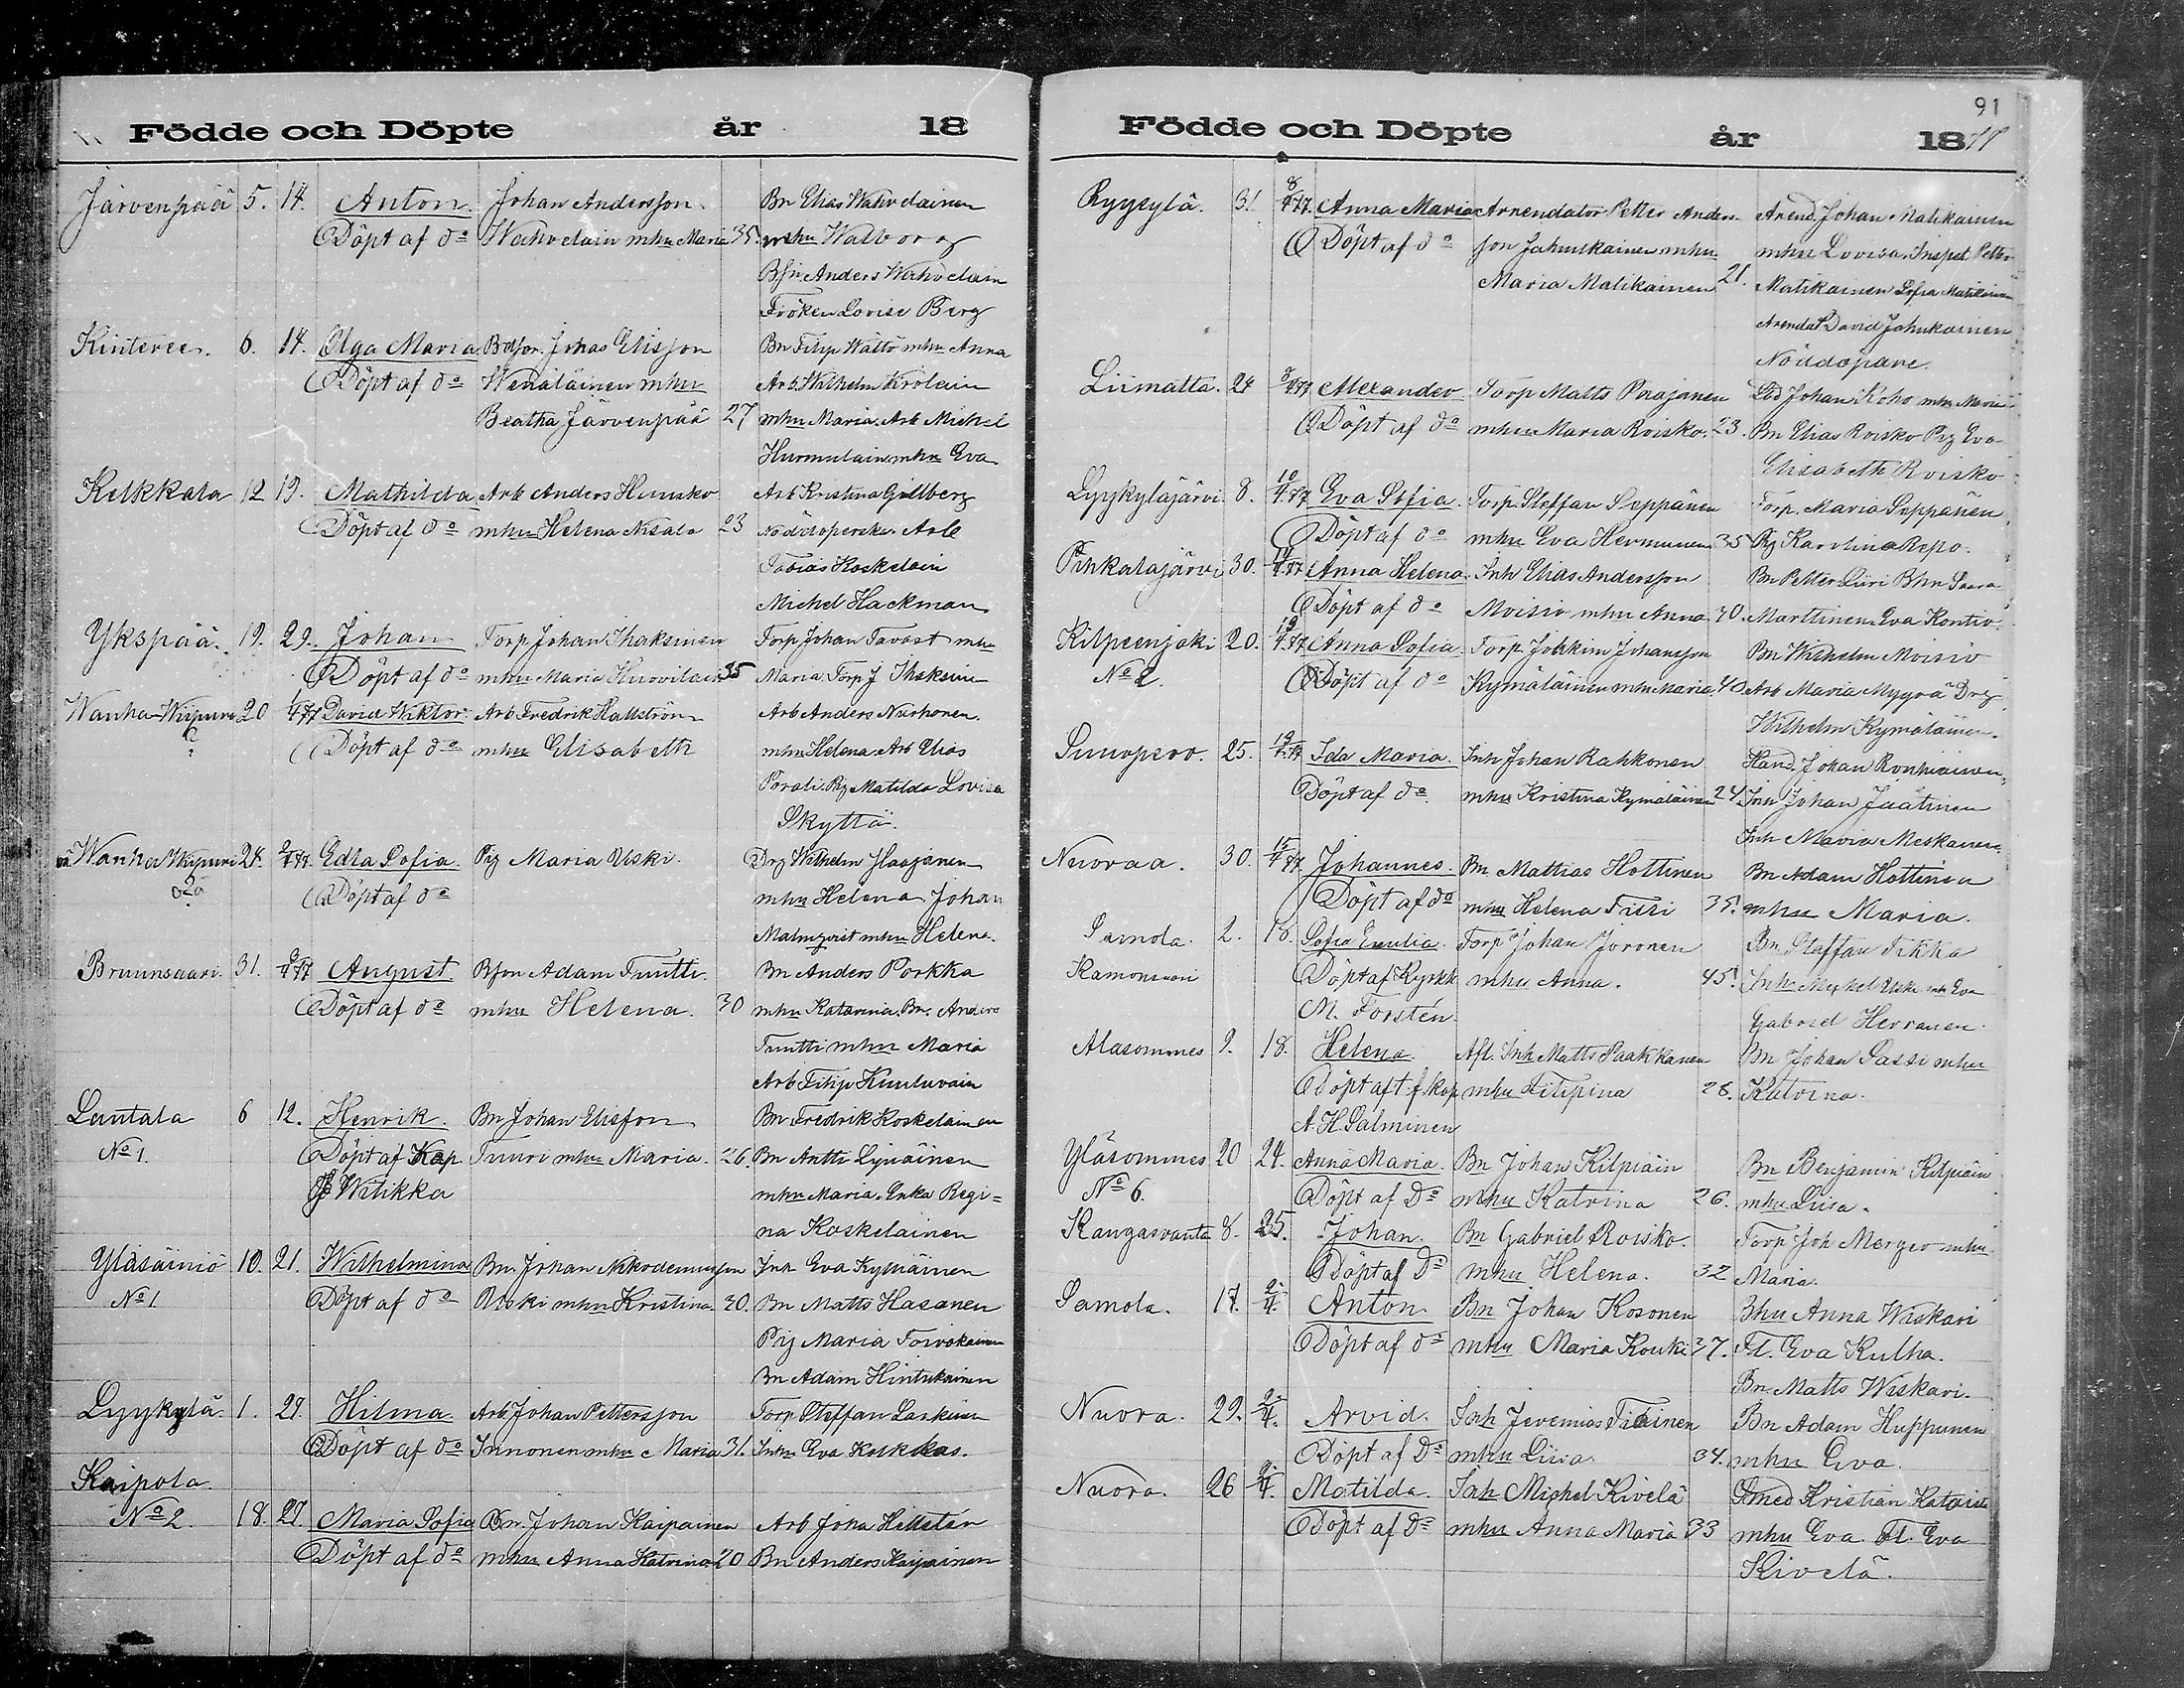 Födde och Döpte år 18
Järvenpää 5. 14. Anton. Johan Andersson. Bn Elias Wahvelainen
Döpt af do Wahvelain mhu Maria 35. mhu Walborg
Bsn. Anders Wahvelain
Fröken Lovise Berg
Kiiteree. 6. 14. Olga Maria Bdsor. Johas Elisson Bn Filip Wättö mhu Anna
Döpt af do Wenäläinen mhu Arb. Wilhelm Krolain
Beatha Järvenpää 27 mhu Maria. Arb Michel
Hurmulain mhu Eva
Kelkkala 12 19. Mathilda Arb Anders Humsko Arb Kristina Gullberg
Döpt af do mhu Helena Nisala 23 Nöddöperska Arb
Tobias Koskelain
Michel Hackman
Ykspää. 19. 29. Johan Torp Johan Ihaksinen Torp Johan Tavast mhu
Döpt af do mhu Maria Hurvilain 35 Maria. Torp J Ihaksine
Wanha-Wiipuri 20 1/4 77 David Wiktor. Arb Fredrik Hallström Arb Anders Nurhonen.
Döpt af do mhu Elisabeth mhu Helena Arb Elias
Porali. Pig Matilda Lovisa
Skyttä.
Wanha Wiipuri 24. 2/4 77. Edla Sofia. Pig Maria Uski. Drg Wilhelm Haajanen
oä Döpt af do mhu Helena Johan
Malmqvist mhu Helena.
Bruunsaari. 31. 2/4 77 August Bson Adam Tuutti. Bn Anders Porkka
Döpt af do mhu Helena. 30 mhu Katarina. Bn. Anders
Tuutti mhu Maria
Arb Filip Kuuluvain
Lantala 6 12. Henrik. Bn Johan Elisson Bn Fredrik Koskelainen
No 1. Döpt af Kap Tuuri mhu Maria. 26. Bn Antti Lyijäinen
J Witikka mhu Maria. Enka Regi=
na Koskelainen
Yläsäiniö 10. 21. Wilhelmina Bn. Johan Nikodemusson Inh Eva Kymäinen
No 1 Döpt af do Uski mhu Kristina 30. Bn Matts Hasanen
Pig Maria Toivokainen
Bn Adam Hintukainen
Lyykylä. 1. 27. Hilma. Arb. Johan Pettersson Torp Steffan Laskinen
Döpt af do Innonen mhu Maria 31. Inh Eva Kekkas.
Kaipola
No 2. 18. 27. Maria Sofia Bn. Johan Kaipainen Arb Joha Hellstén
Döpt af do mhu Anna Katrina 20 Bn Anders Kaipainen
91
Födde och Döpte år 1877
Ryysylä. 31. 8/4 77. Anna Maria Arrendator Petter Anders- Arend. Johan Matikainen
Döpt af do son Jahnukainen mhu mhu Lovisa. Inspet Petter
Maria Matikainen 21. Matikainen Sofia Matikainen
Arendat David Jahnukainen
Nöddöpare.
Liimatta. 24 8/4 77 Alexander Torp Matts Porajanen Lbd Johan Koho mhu Maria.
Döpt af do mhu Maria Roisko. 23. Bn Elias Roisko Pig Eva
Elisabeth Roisko
Lyykyläjärvi. 8. 10/4 77 Eva Sofia. Torp. Steffan Seppänen Torp. Maria Seppänen
Döpt af do mhu Eva Hermunen 35 Pig Karolina Repo.
Pihkalajärvi 30. 14/4 77 Anna Helena. Inh Elias Andersson Bn Petter Liiri Bhn Saara
Döpt af do Moisio mhu Anna 30. Marttinen Eva Kontio.
Kilpeenjoki 20. 19/4 77 Anna Sofia. Torp. Johkim Johansson Bn Wilhelm Moisio
No 2. Döpt af do Kymäläinen mhu Maria. 40 Arb Maria Myyrä Drg
Wilhelm Kymäläinen.
Suuopero. 25. 19/4 77 Ida Maria. Inh Johan Rahkonen Hand. Johan Ronkainen,
Döpt af do. mhu Kristina Kymäläinen 24 Inh Johan Jäätinen
Inh Maria Meskanen.
Nuoraa. 30. 15/4 77 Johannes. Bn. Mattias Hottinen Bn Adam Hottinen
Döpt af do mhu Helena Tissi 35. mhu Maria.
Samola. 2. 16. Sofia Emilia. Torp Johan Joronen Bn. Staffan Tikka
Ramonsaari Döpt af Kyrkh mhu Anna. 45. Inh. Michel Uski mhu Eva
M. Forstén. Gabriel Herranen.
Alasommee 9. 18. Helena. Afl. Inh Matts Paakkanen Bn Johan Sassi mhu
Döpt aft. f. Kap mhu Filipina 28. Katrina.
A. H. Salminen
Yläsommee 20 24. Anna Maria. Bn Johan Kilpiäin Bn Benjamin Kilpiäin
No 6. Döpt af Do mhu Katrina 26. mhu Liisa.
Kangasranta 8. 25. Johan. Bn Gabriel Roisko. Torp Joh Merger mhu
Döpt af Do mhu Helena. 32 Maria.
Samola. 17. 2/4. Anton Bn Johan Kosonen Bhu Anna Wiskari
Döpt af do mhu Maria Kouki 37. Fl. Eva Kulha.
Bn. Matts Wiskari.
Nuora. 29. 2/4. Arvid. Inh Jeremias Tiainen Bn Adam Huppunen
Döpt af Do mhu Liisa. 34. mhu Eva.
Nuora. 26 2/4. Matilda. Inh Michel Kivelä Smed Kristian
Döpt af Do mhu Anna Maria 33 mhu Eva. Fl. Eva
Kivelä.